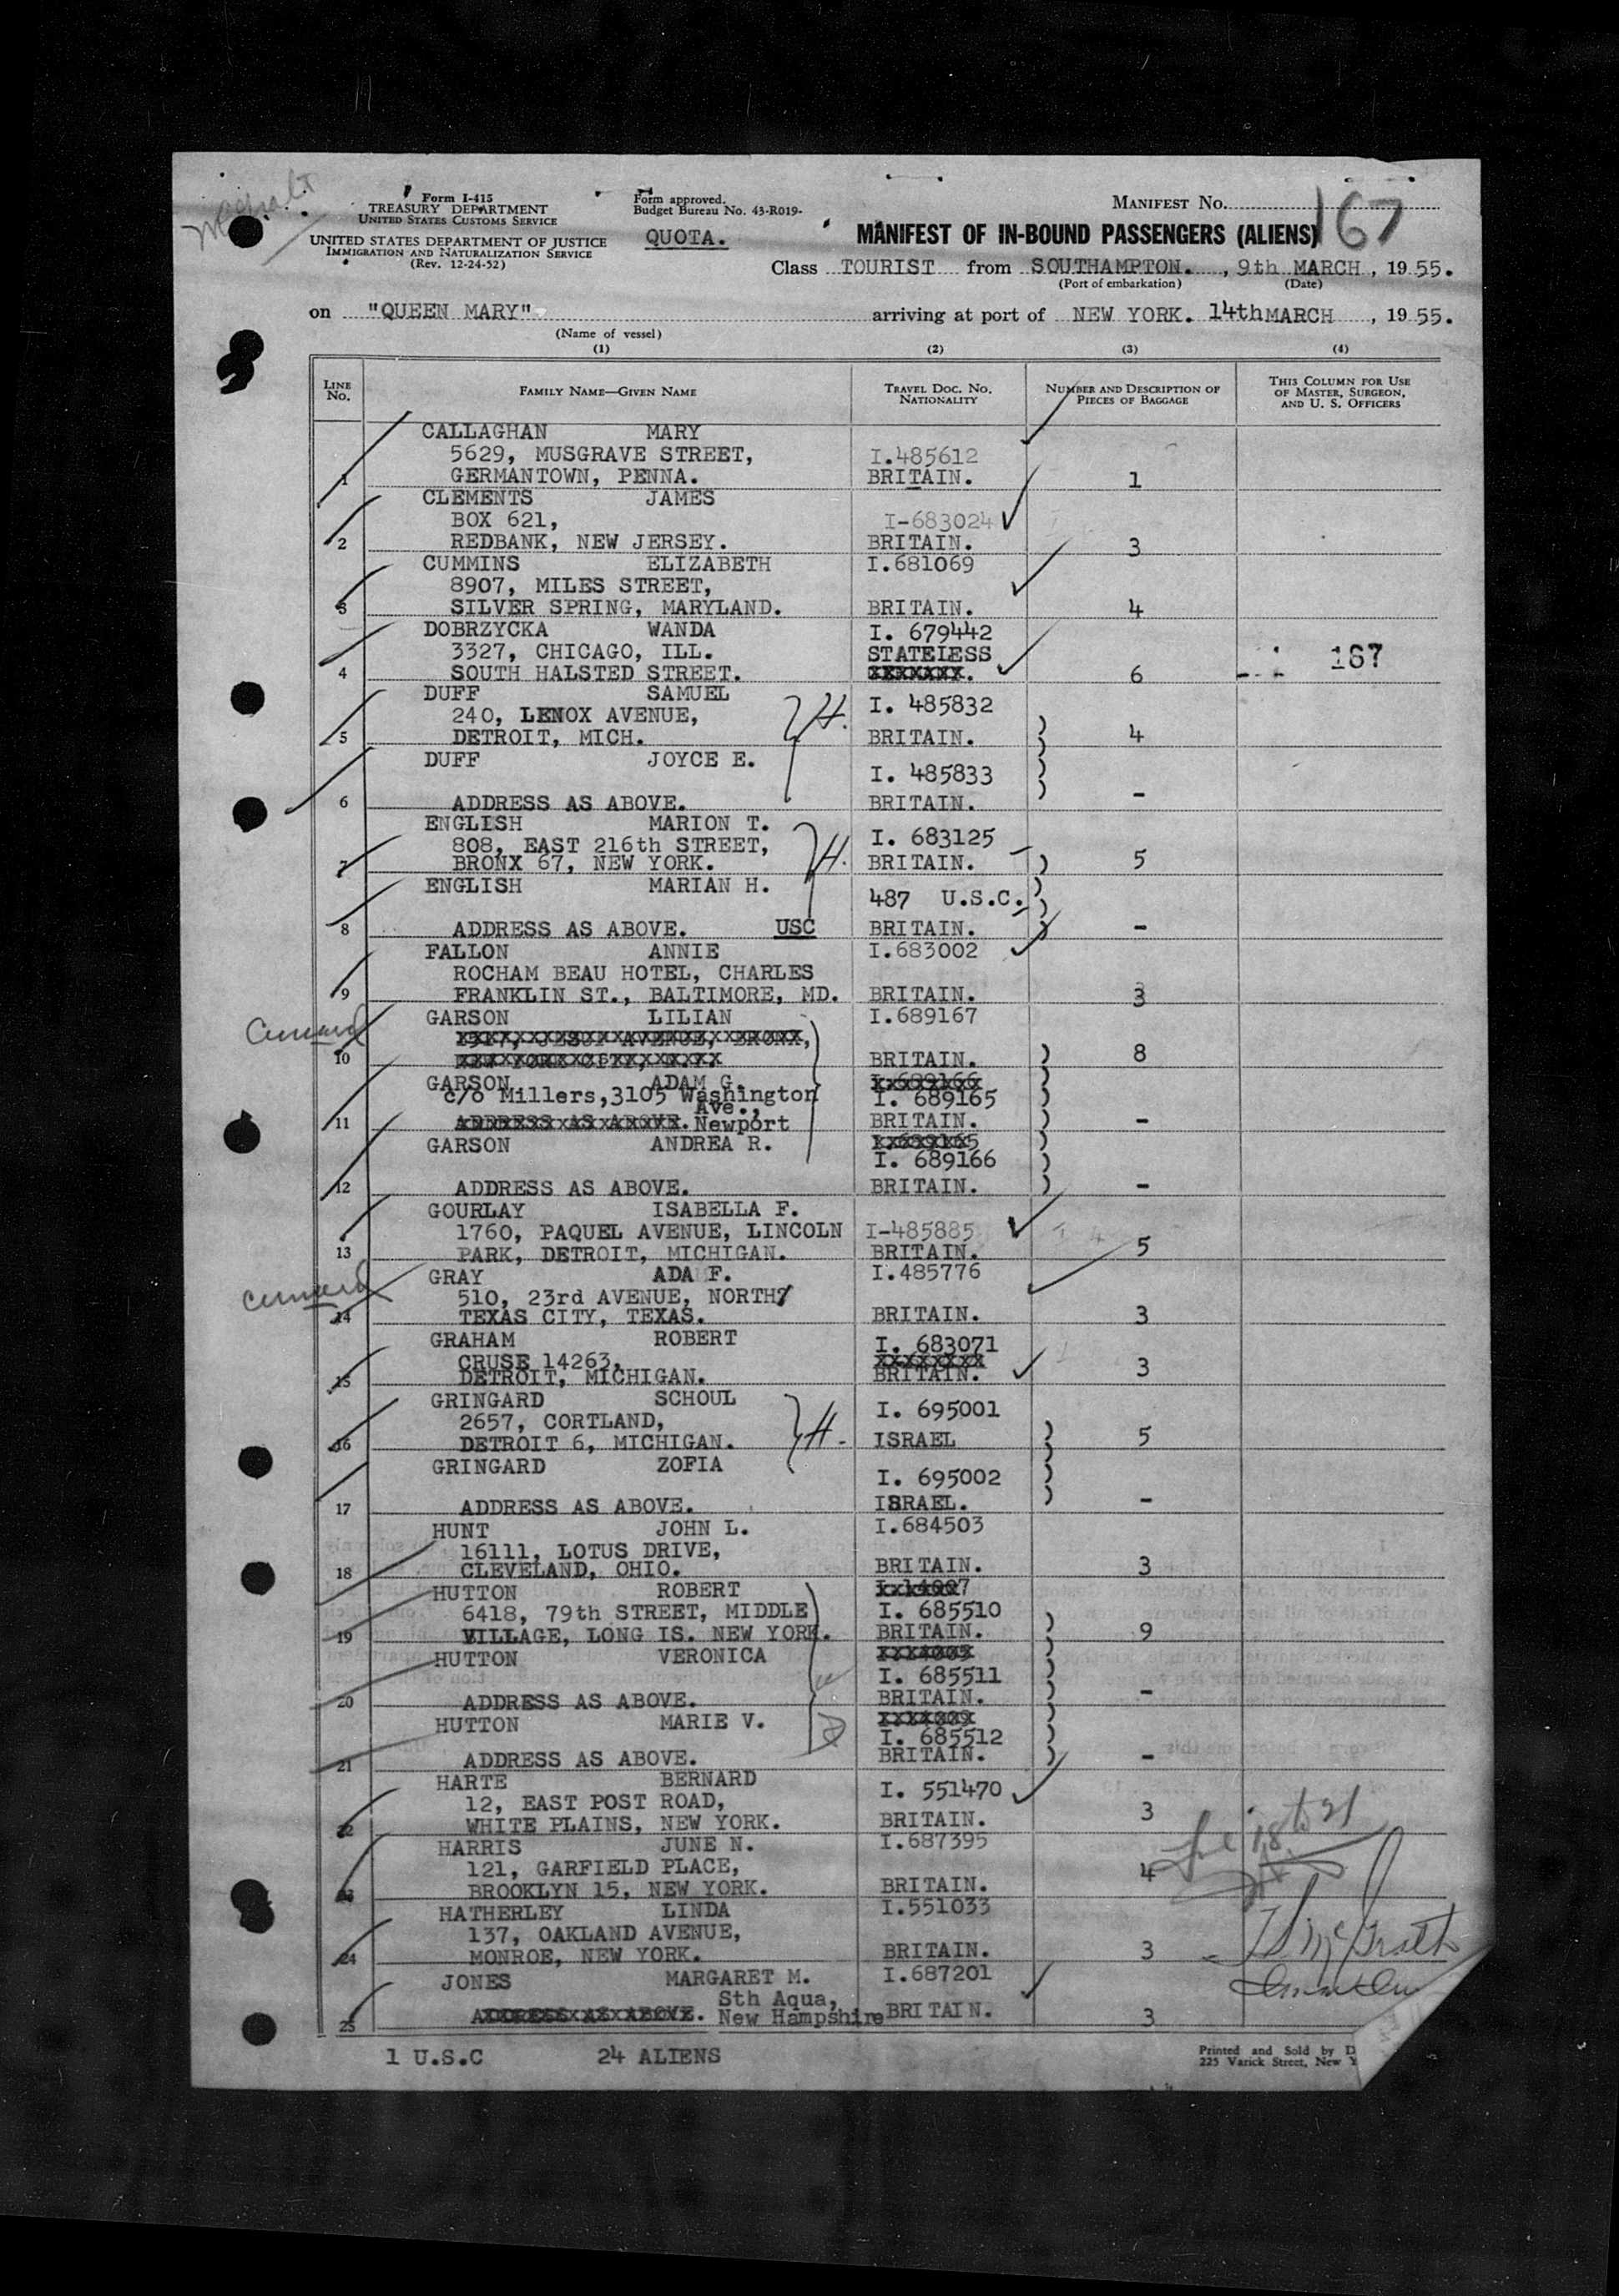 Form I-415
TREASURY DEPARTMENT
UNITED STATES CUSTOMS SERVICE
UNITED STATES DEPARTMENT OF JUSTICE
IMMIGRATION AND NATURALIZATION SERVICE
(Rev. 12-24-52)
Form approved.
Budget Bureau No. 43-R019-
QUOTA.
MANIFEST NO. 167
MANIFEST OF IN-BOUND PASSENGERS (ALIENS)
Class TOURIST from SOUTHAMPTON. , 9th MARCH , 19 55.
(Port of embarkation) (Date)
on "QUEEN MARY" arriving at port of NEW YORK. 14th MARCH , 19 55.
(Name of vessel)
(1) (2) (3) (4)
LINE NO. FAMILY NAME—GIVEN NAME TRAVEL DOC. NO. NATIONALITY NUMBER AND DESCRIPTION OF PIECES OF BAGGAGE THIS COLUMN FOR USE OF MASTER, SURGEON, AND U. S. OFFICERS
CALLAGHAN MARY
5629, MUSGRAVE STREET, I.485612
1 GERMANTOWN, PENNA. BRITAIN. 1
CLEMENTS JAMES
BOX 621, I-683024
2 REDBANK, NEW JERSEY. BRITAIN. 3
CUMMINS ELIZABETH I.681069
8907, MILES STREET,
3 SILVER SPRING, MARYLAND. BRITAIN. 4
DOBRZYCKA WANDA I. 679442
3327, CHICAGO, ILL. STATELESS 167
4 SOUTH HALSTED STREET. 6
DUFF SAMUEL
240, LENOX AVENUE, I. 485832
5 DETROIT, MICH. BRITAIN. 4
DUFF JOYCE E.
I. 485833
6 ADDRESS AS ABOVE. BRITAIN. -
ENGLISH MARION T.
808, EAST 216th STREET, I. 683125
7 BRONX 67, NEW YORK. BRITAIN. 5
ENGLISH MARIAN H.
487 U.S.C.
8 ADDRESS AS ABOVE. USC BRITAIN. -
FALLON ANNIE I.683002
ROCHAM BEAU HOTEL, CHARLES
9 FRANKLIN ST., BALTIMORE, MD. BRITAIN. 3
Cunard GARSON LILIAN I.689167
10 BRITAIN. 8
GARSON ADAM G.
c/o Millers, 3105 Washington I. 689165
Ave.,
11 Newport BRITAIN. -
GARSON ANDREA R.
I. 689166
12 ADDRESS AS ABOVE. BRITAIN. -
GOURLAY ISABELLA F.
1760, PAQUEL AVENUE, LINCOLN I-485885
13 PARK, DETROIT, MICHIGAN. BRITAIN. 5
Cunard GRAY ADA F. I.485776
510, 23rd AVENUE, NORTH
14 TEXAS CITY, TEXAS. BRITAIN. 3
GRAHAM ROBERT I. 683071
CRUSE 14263,
15 DETROIT, MICHIGAN. BRITAIN. 3
GRINGARD SCHOUL
2657, CORTLAND, I. 695001
16 DETROIT 6, MICHIGAN. ISRAEL 5
GRINGARD ZOFIA
I. 695002
17 ADDRESS AS ABOVE. ISRAEL. -
HUNT JOHN L. I.684503
16111, LOTUS DRIVE,
18 CLEVELAND, OHIO. BRITAIN. 3
HUTTON ROBERT
6418, 79th STREET, MIDDLE I. 685510
19 VILLAGE, LONG IS. NEW YORK. BRITAIN. 9
HUTTON VERONICA
I. 685511
20 ADDRESS AS ABOVE. BRITAIN. -
HUTTON MARIE V.
I. 685512
21 ADDRESS AS ABOVE. BRITAIN. -
HARTE BERNARD
12, EAST POST ROAD, I. 551470
22 WHITE PLAINS, NEW YORK. BRITAIN. 3
HARRIS JUNE N. I.687395
121, GARFIELD PLACE,
23 BROOKLYN 15, NEW YORK. BRITAIN. 4
HATHERLEY LINDA I.551033
137, OAKLAND AVENUE,
24 MONROE, NEW YORK. BRITAIN. 3
JONES MARGARET M. I.687201
Sth Aqua,
25 New Hampshire BRITAIN. 3
1 U.S.C 24 ALIENS
Printed and Sold by
225 Varick Street, New